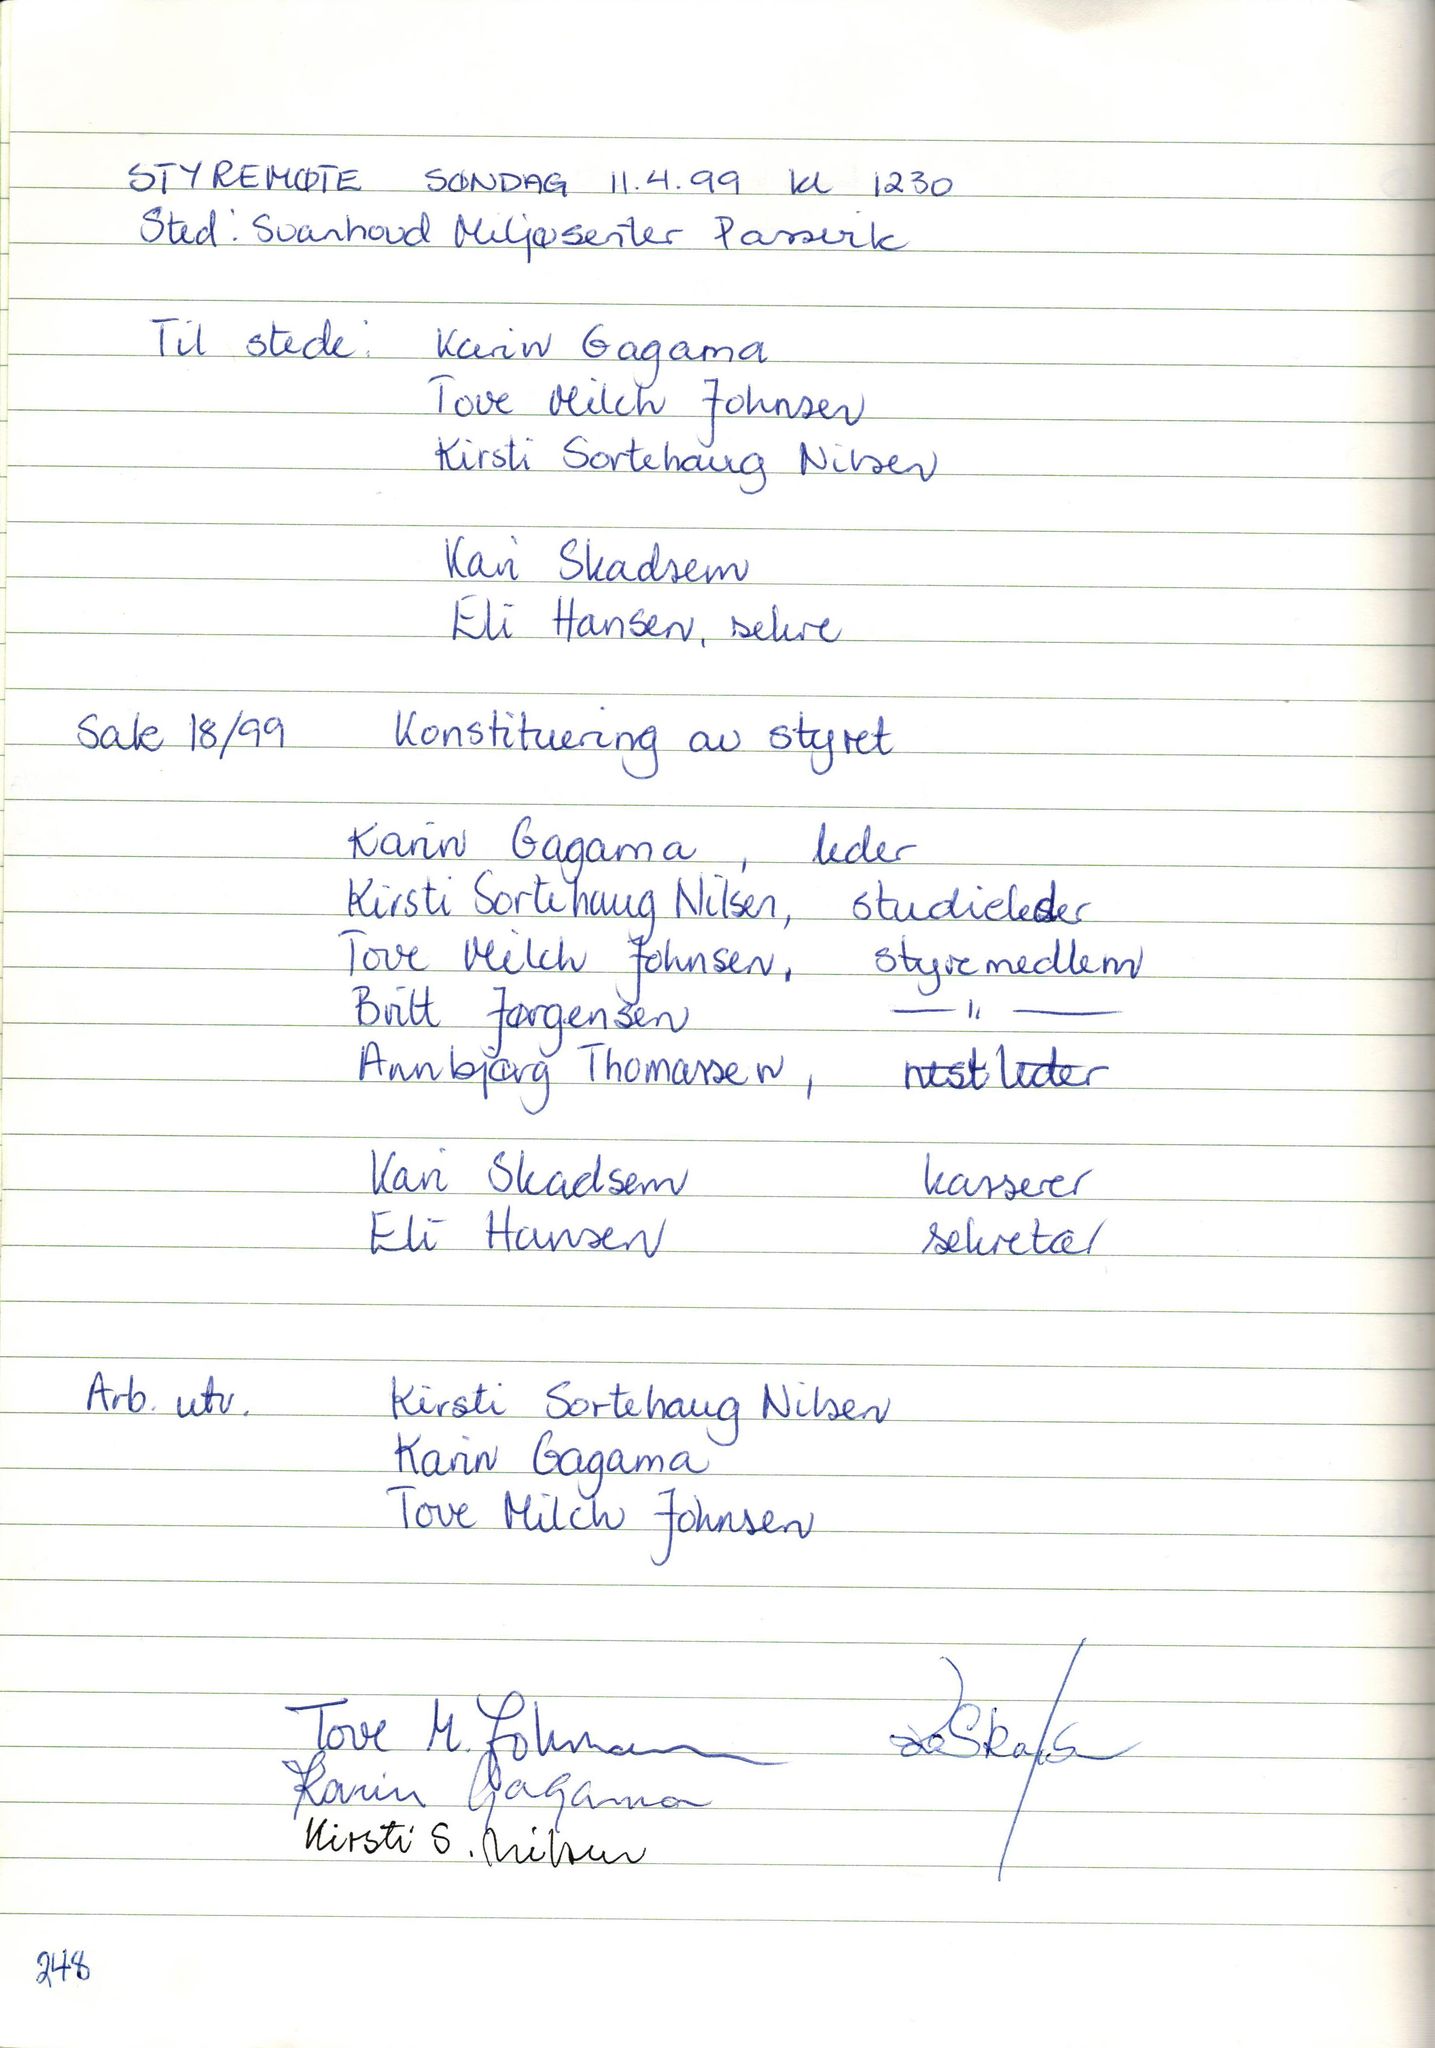 STYREMØTE SØNDAG 11.4.99 kl 1230
Sted: Svanhovd Miljøsenter Pasvik
Til stede: Karin Gagama
Tove Milch Johnsen
Kirsti Sortehaug Nilsen
Kari Skadsem
Eli Hansen, sekre
Sak 18/99 Konstituering av styret
Karin Gagama, leder
Kirsti Sortehaug Nilsen, studieleder
Tove Milch Johnsen, styremedlem
Britt Jørgensen — " —
Annbjørg Thomassen, nestleder
Kari Skadsem kasserer
Eli Hansen sekretær
Arb. utv. Kirsti Sortehaug Nilsen
Karin Gagama
Tove Milch Johnsen
Tove M. Johnsen
Karin Gagama
Kirsti S. Nilsen
248